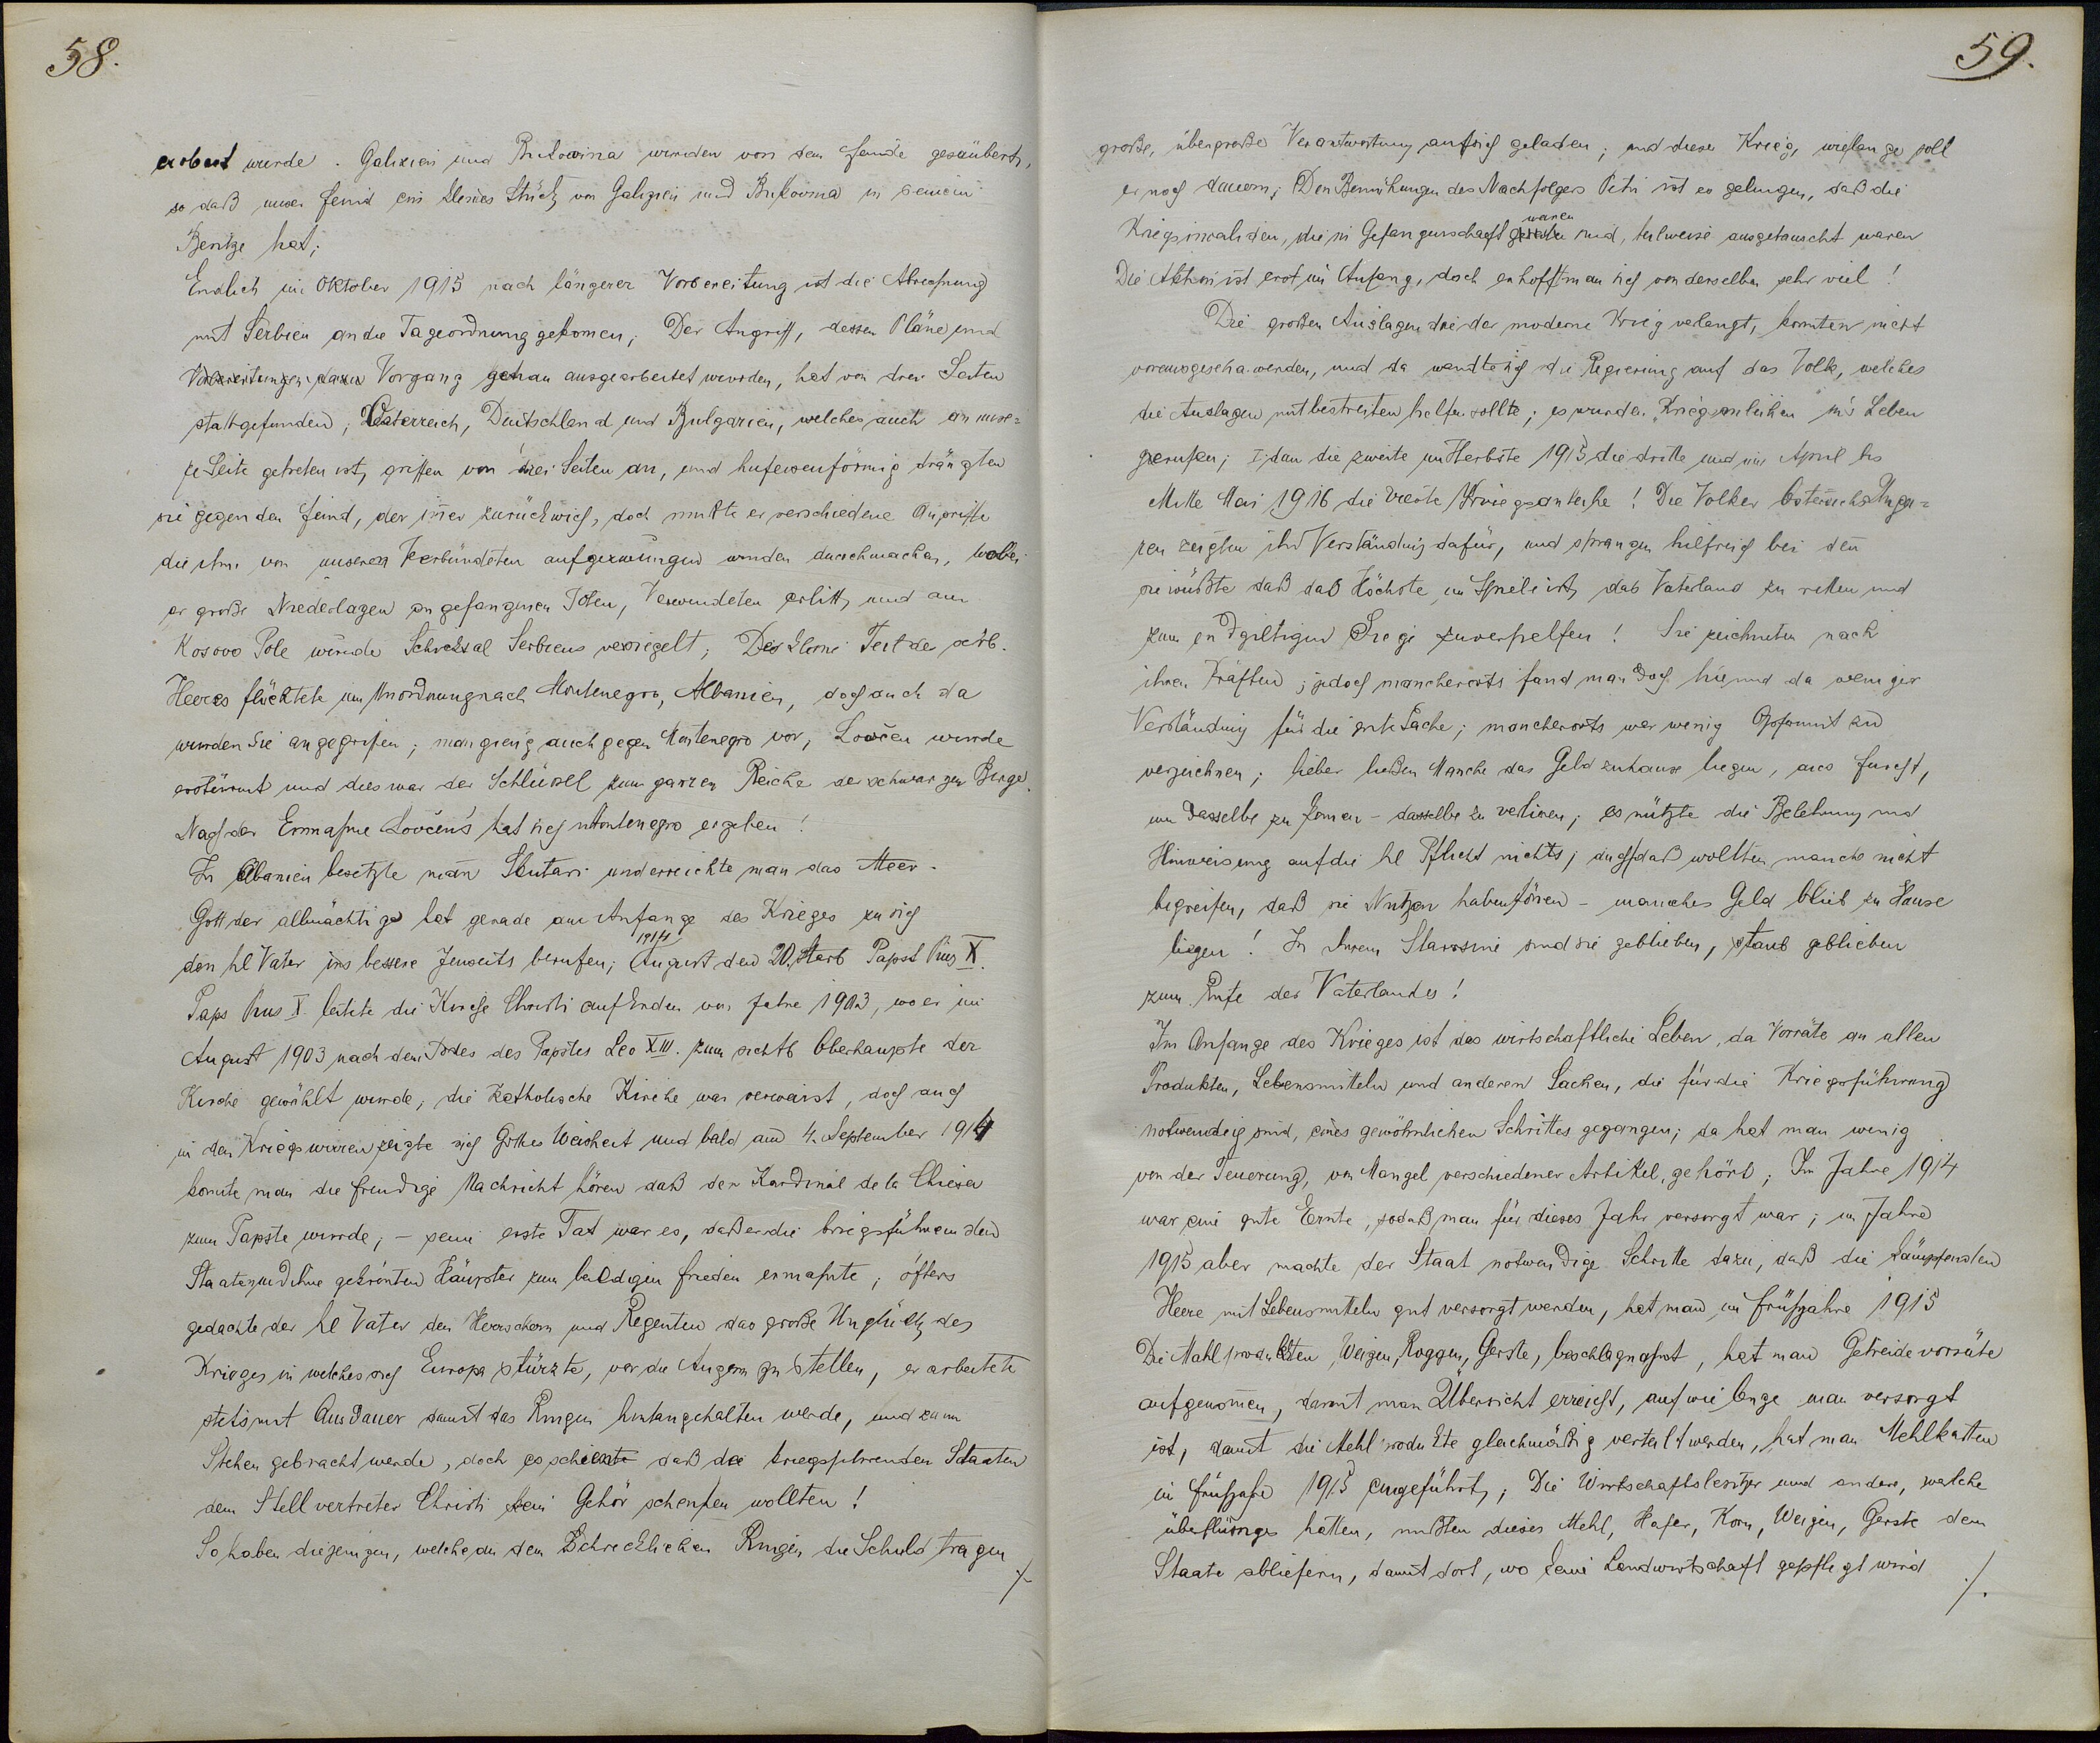 58.
erobert wurde. Galizien und Bukowina wurden von dem Feinde gesäubert,
so daß unser Feind ein kleines Stück von Galizien und Bukovina in seinem
Besitze hat;
Endlich im Oktober 1915 nach längerer Vorbereitung ist die Abrechnung
mit Serbien an die Tagesordnung gekomen; Der Angriff, dessen Pläne und
Vorbereitungen Vorgang genau ausgearbeitet wurden, hat von drei Seiten
stattgefunden; Österreich, Deutschland und Bulgarien, welches auch an unse=
re Seite getreten ist, griffen von drei Seiten an, und hufeisenförmig drängten
sie gegen den Feind, der imer zurückwich, doch mußte er verschiedene Angriffe
die ihm von unseren Verbündeten aufgezwungen wurden durchmachen, wobei
er große Niederlagen an gefangenen Toten, Verwundeten erlitt, und am
Kosovo Pole wurde Schicksal Serbiens versiegelt; Der kleine Teil des serb.
Heeres flüchtete in Unordnung nach Montenegro, Albanien, doch auch da
wurden Sie angegriffen; man gieng auch gegen Montenegro vor, Lovčen wurde
erstürmt und dies war der Schlüssel zum ganzen Reiche der schwarzen Berge.
Nach der Einnahme Lovčen's hat sich Montenegro ergeben!
In Albanien besetzte man Skutari und erreichte man das Meer.
Gott der allmächtige hat gerade am Anfange des Krieges zu sich
1914
den hl Vater ins bessere Jenseits berufen; August den 20. starb Papst Pius X.
Paps Pius X. leitete die Kirche Christi auf Erden vom Jahre 1903, wo er im
August 1903 nach dem Todes des Papstes Leo XIII. zum sichtb Oberhaupte der
Kirche gewählt wurde; die katholische Kirche war verwaist, doch auch
in den Kriegswirren zeigte sich Gottes Weisheit und bald am 4. September 1914
konnte man die freudige Nachricht hören daß der Kardinal de la Chiesa
zum Papste wurde; – seine erste Tat war es, daß er die kriegsführenden
Staaten und ihre gekrönten Häupter zum baldigen Frieden ermahnte; öfters
gedachte der hl Vater den Herrschern und Regenten das große Unglück des
Krieges in welches sich Europa stürzte, vor die Augen zu stellen, er arbeitete
stets mit Ausdauer damit das Ringen hintangehalten werde, und zum
Stehen gebracht werde, doch es scheint daß die kriegsführenden Staaten
dem Stellvertreter Christi kein Gehör schenken wollten!
So haben diejenigen, welche an dem Schrecklichen Ringen die Schuld tragen
./.
59.
große, übergroße Verantwortung auf sich geladen; und dieser Krieg, wie lange soll
er noch dauern; Den Bemühungen des Nachfolgers Petri ist es gelungen, daß die
waren
Kriegsinvaliden, die in Gefangenschaft sind, teilweise ausgetauscht waren
Die Aktion ist erst im Anfang, doch erhofft man sich von derselben sehr viel!
Die großen Auslagen die der moderne Krieg verlangt, konnten nicht
vorausgeseha. werden, und da wendte sich die Regierung auf das Volk, welches
die Auslagen mitbestreiten helfen sollte; es wurden Kriegsanleihen in's Leben
gerufen; I; dan die zweite im Herbste 1915 die dritte und im April bis
Mitte Mai 1916 die vierte Kriegsanleihe! Die Völker Österreichs Unga=
ren zeigten ihr Verständnis dafür, und sprangen hilfreich bei den
sie wußte daß das Höchste im Spiele ist, das Vaterland zu retten und
zum endgiltigen Siege zuverhelfen! Sie zeichneten nach
ihren Kräften; jedoch mancherorts fand man doch hie und da weniger
Verständnis für die gute Sache; mancherorts war wenig Opfermut zu
verzeichnen; lieber ließen Manche das Geld zuhause liegen, aus Furcht,
um dasselbe zu komen – dasselbe zu verlieren; es nützte die Belehrung und
Hinweisung auf die hl Pflicht nichts; auch daß wollten manche nicht
begreifen, daß sie Nutzen haben können – manches Geld blieb zu Hause
liegen! In ihrem Starrsinn sind sie geblieben, staub geblieben
zum Rufe des Vaterlandes!
Im Anfange des Krieges ist das wirtschaftliche Leben, da Vorräte an allen
Produkten, Lebensmitteln und anderen Sachen, die für die Kriegsführung
notwendig sind, eines gewöhnlichen Schrittes gegangen; da hat man wenig
von der Teuerung, von Mangel verschiedener Artikel, gehört; Im Jahre 1914
war eine gute Ernte, sodaß man für dieses Jahr versorgt war; im Jahre
1915 aber machte der Staat notwendige Schritte dazu, daß die kämpfenden
Heere mit Lebensmiteln gut versorgt werden, hat man im Frühjahre 1915
Die Mahlprodukten, Weizen, Roggen, Gerste, beschlagnahmt, hat man Getreidevorräte
aufgenomen, damit man Übersicht erreicht, auf wie lange man versorgt
ist, damit die Mehlprodukte gleichmäßig verteilt werden, hat man Mehlkarten
im Frühjahr 1915 eingeführt; Die Wirtschaftsbesitzer und andere, welche
überflüssiges hatten, mußten dieses Mehl, Hafer, Korn, Weizen, Gerste dem
Staate abliefern, damit dort, wo keine Landwirtschaft gepflegt wird
./.